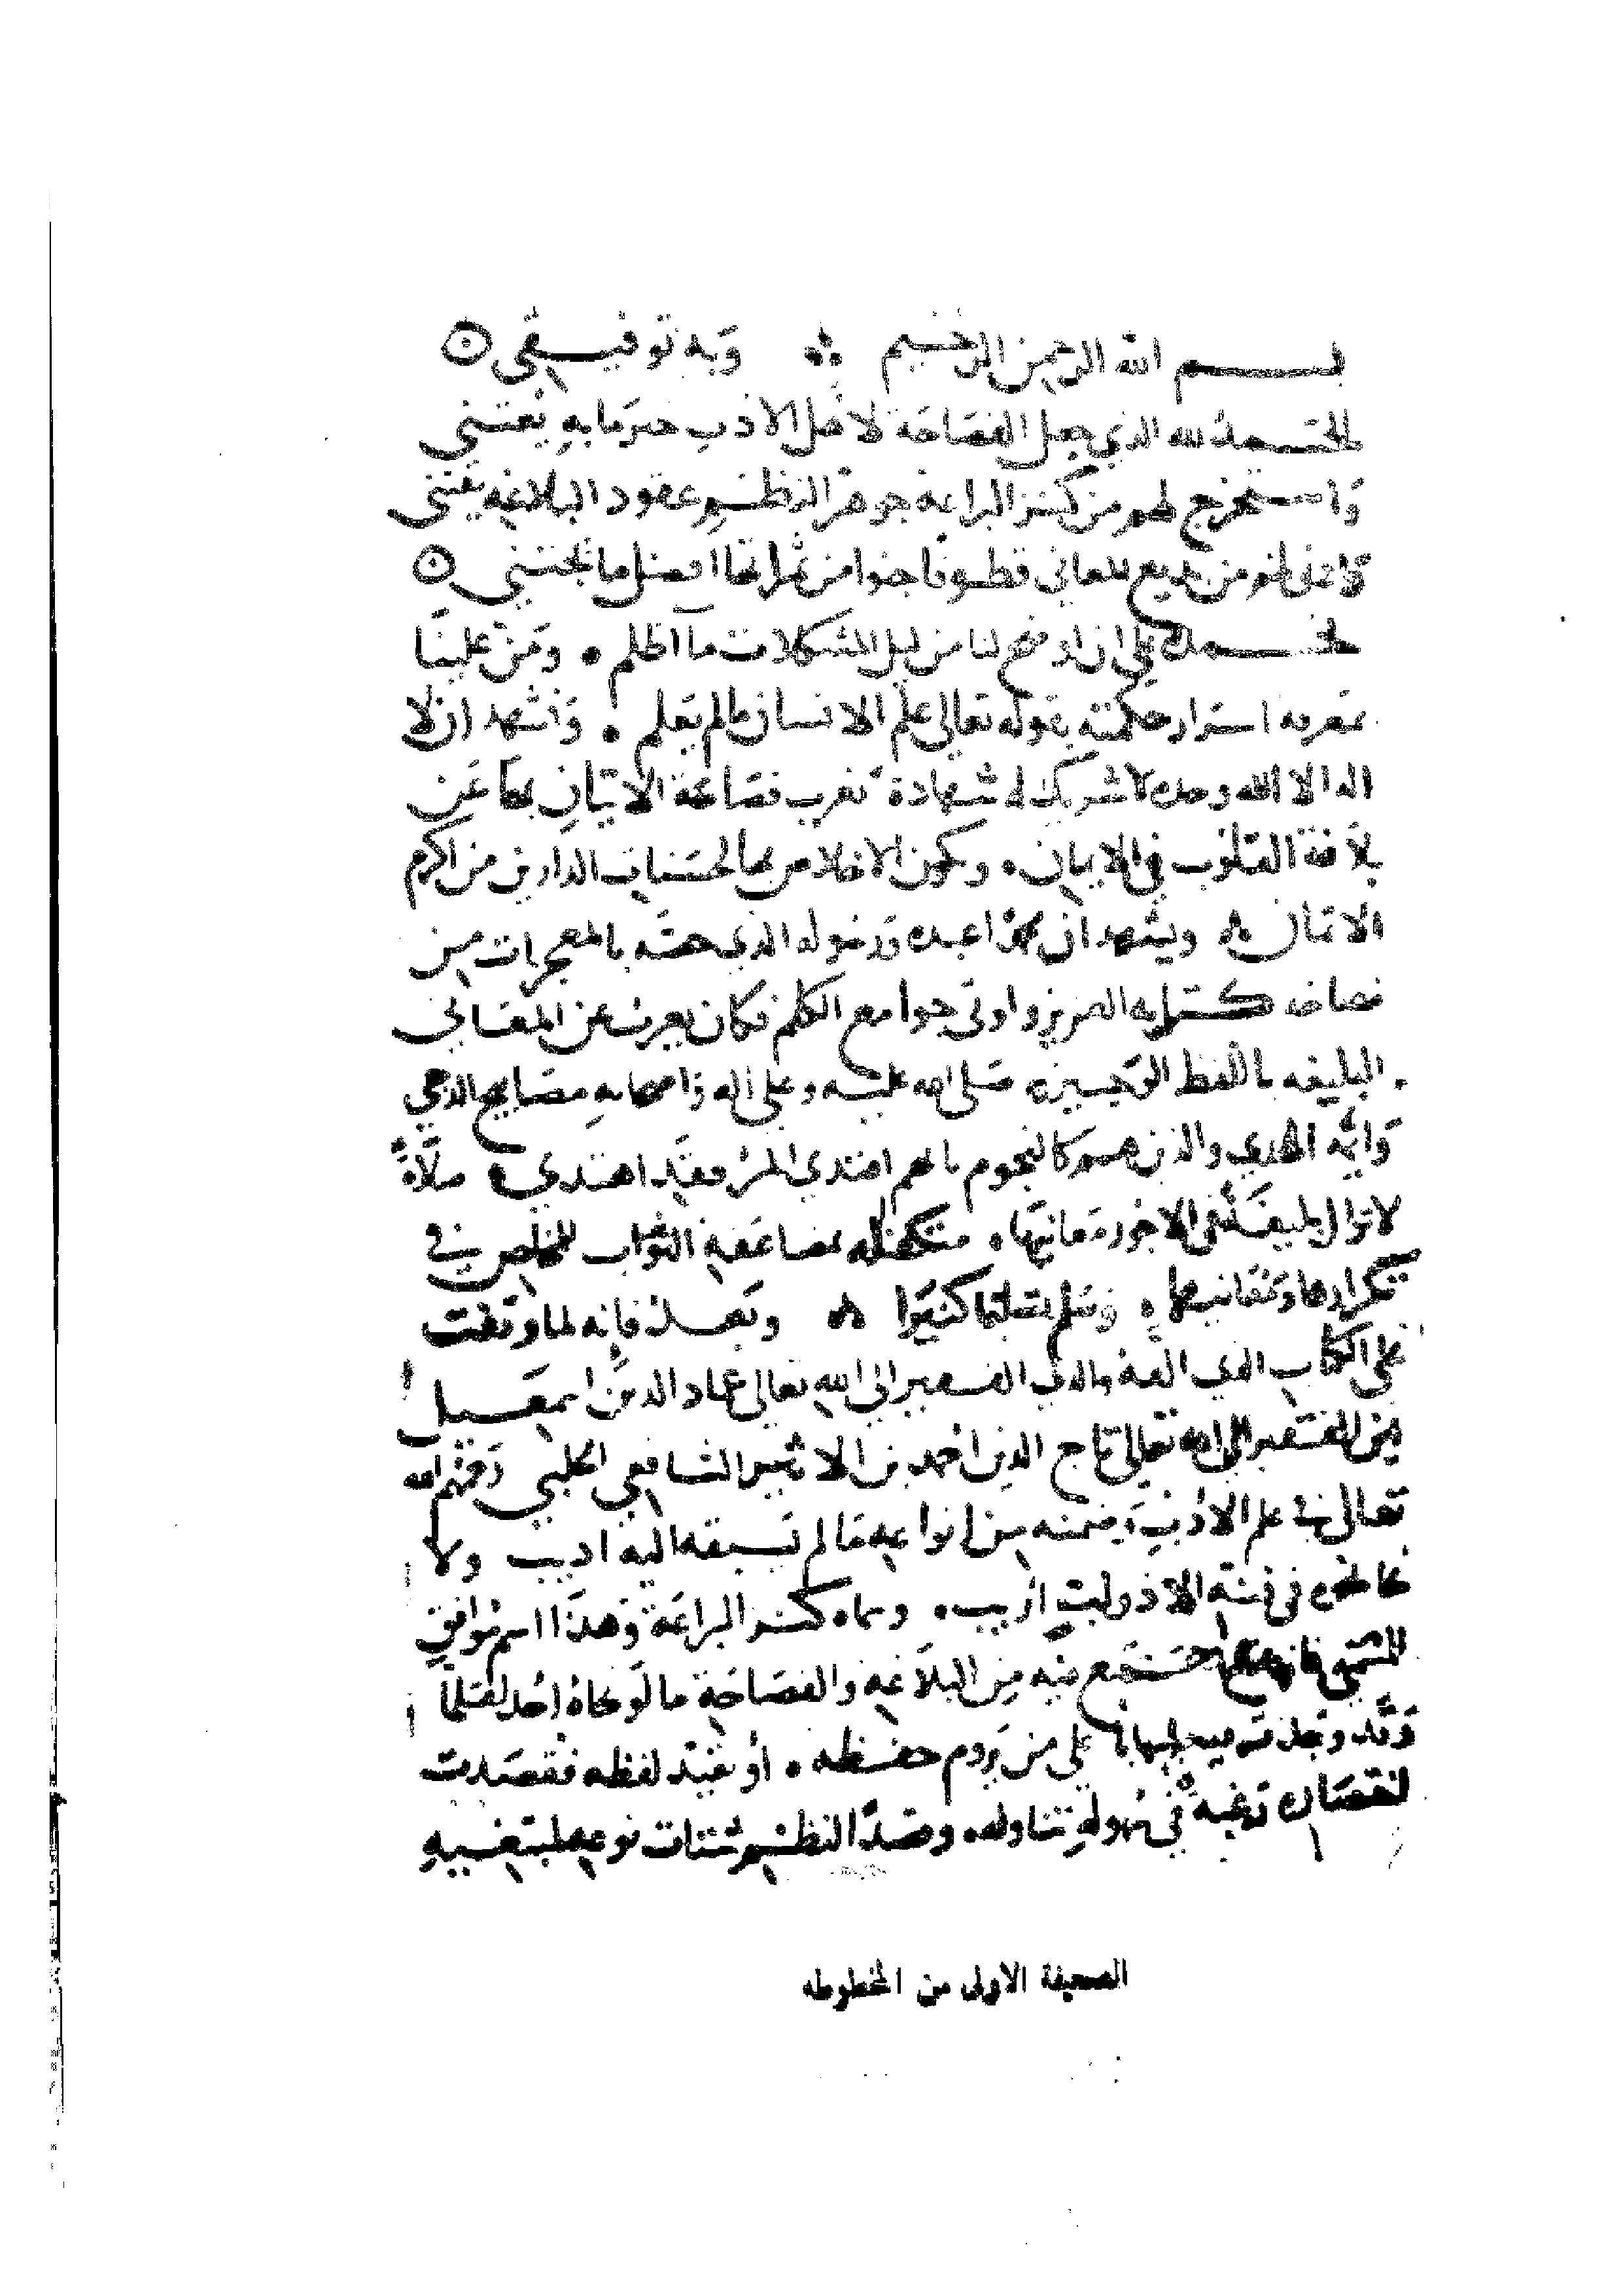 بسم الله الرحمن الرحيم وبه توفيقي
الحمد لله الذي جعل الفصاحة لاهل الادب خير ما به يعتني
واستخرج لهم من كنز البراعة جوهرا لنظم عقود البلاغه يقتني
من بديع المعاني قطوفا جنوا من ثمراتها افضل ما يجتني
نحمده على ان اوضح لنا من ليل المشكلات ما اظلم . ومن علينا
بمعرفه اسرار حكمته بقوله تعالى علم الانسان ما لم يعلم . ونشهد ان لا
اله الا الله وحده لا شريك له شهادة تعرب فصاحة الاتيان بها عن
بلاغة القلوب في الايمان . ويكون الاخلاص بها لحسنات الدارين من اكرم
الاثمان ويشهد ان محمدا عبده ورسوله الذي خصه بالمعجزات من
فصاحه كتابه العزيز واوتي جوامع الكلم فكان يعرب عن المعاني
البليغه باللفظ الوجيز صلى الله عليه وعلى اله واصحابه مصابيح الدجى
وائمه الهدى والذين هم كالنجوم بايهم اقتدى المرء فقد اهتدى صلاة
لا تزال بليغة في الاجور معانيها . متكفله بمضاعفه الثواب للمخلص في
تكرارها ومعانيها . وسلم تسليما كثيرا وبعد فانه لما وقفت
على الكتاب الذي الفه والدي الفقير الى الله تعالى عماد الدين اسمعيل
بن الفقير الى الله تعالى تاج الدين احمد بن الاثير الشافعي الحلبي رحمهم الله
تعالى في علم الادب وضمنه من انواعه ما لم يسبقه اليه اديب ولا
في فنه الاذو لب اريب . وسماه كنز البراعة وهذا اسم يوافق
المسمى فانه جمع فيه من البلاغه والفصاحة ما لو نحاه احد لقلما
وقد وجدت فيه اسهابا على من يروم حفظه . او يقيد لفظه فقصدت
اختصاره رغبة في سهولة تناوله . وضم النظم شتات نوعه لمبتغيه
الصحيفة الاولى من المخطوطه